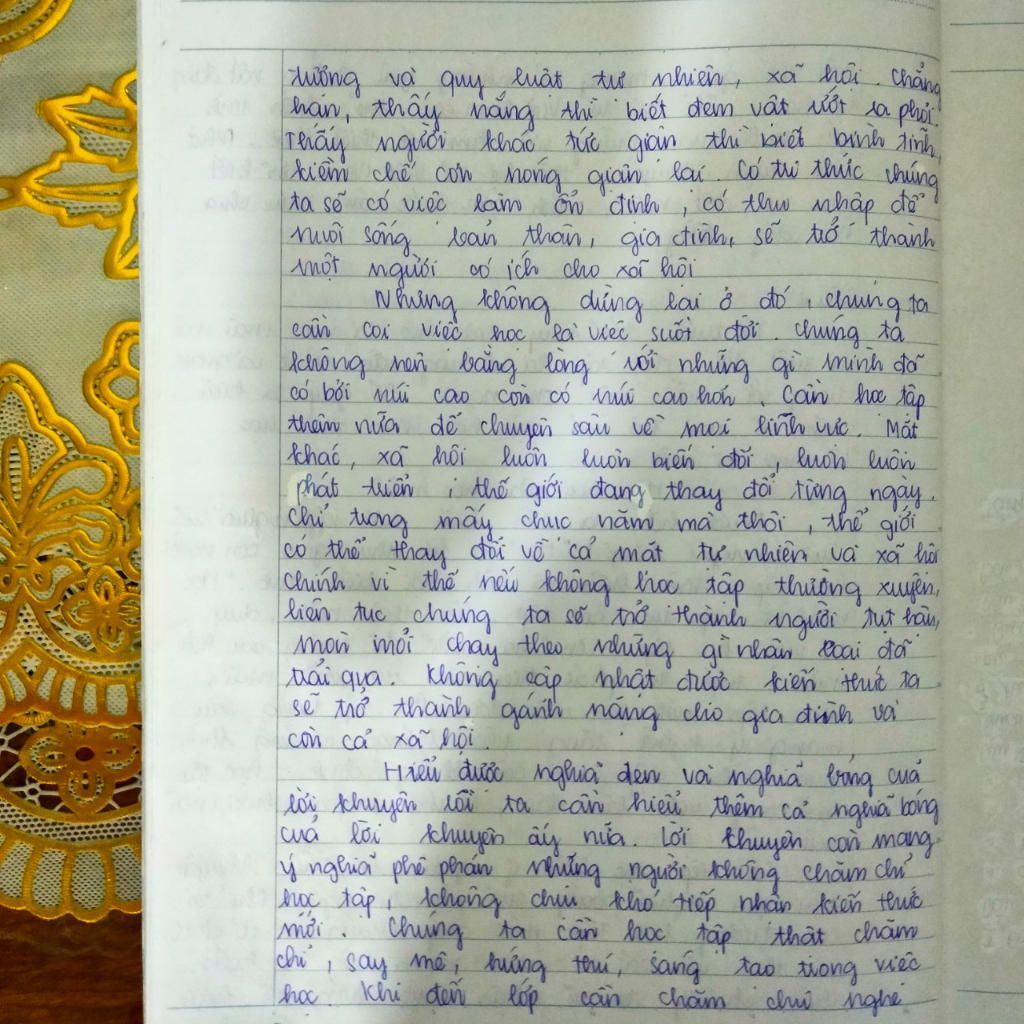 tưởng và quy luật tự nhiên, xã hội. Chẳng
hạn, thấy nắng thì biết đem vật ướt ra phơi.
Thấy người khác tức giận thì biết bình tĩnh,
kiềm chế cơn nóng giận lại. Có tri thức chúng
ta sẽ có việc làm ổn định, có thu nhập để
nuôi sống bản thân, gia đình, sẽ trở thành
một người có ích cho xã hội
Nhưng không dừng lại ở đó, chúng ta
cần coi việc học là việc suốt đời. Chúng ta
không nên bằng lòng với những gì mình đã
có bởi núi cao còn có núi cao hơn. Cần học tập
thêm nữa để chuyên sâu về mọi lĩnh vực. Mặt
khác, xã hội luôn luôn biến đổi, luôn luôn
phát triển, thế giới đang thay đổi từng ngày.
Chỉ trong mấy chục năm mà thôi, thế giới
có thể thay đổi về cả mặt tự nhiên và xã hội
chính vì thế nếu không học tập thường xuyên,
liên tục chúng ta sẽ trở thành người tụt hậu,
mòn mỏi chạy theo những gì nhân loại đã
trải qua. Không cập nhật được kiến thức ta
sẽ trở thành gánh nặng cho gia đình và
còn cả xã hội.
Hiểu được nghĩa đen và nghĩa bóng của
lời khuyên rồi ta cần hiểu thêm cả nghĩa bóng
của lời khuyên ấy nữa. Lời khuyên còn mang
ý nghĩa phê phán những người không chăm chỉ
học tập, không chịu khó tiếp nhận kiến thức
mới. Chúng ta cần học tập thật chăm
chỉ, say mê, hứng thú, sáng tạo trong việc
học. Khi đến lớp cần chăm chú nghe